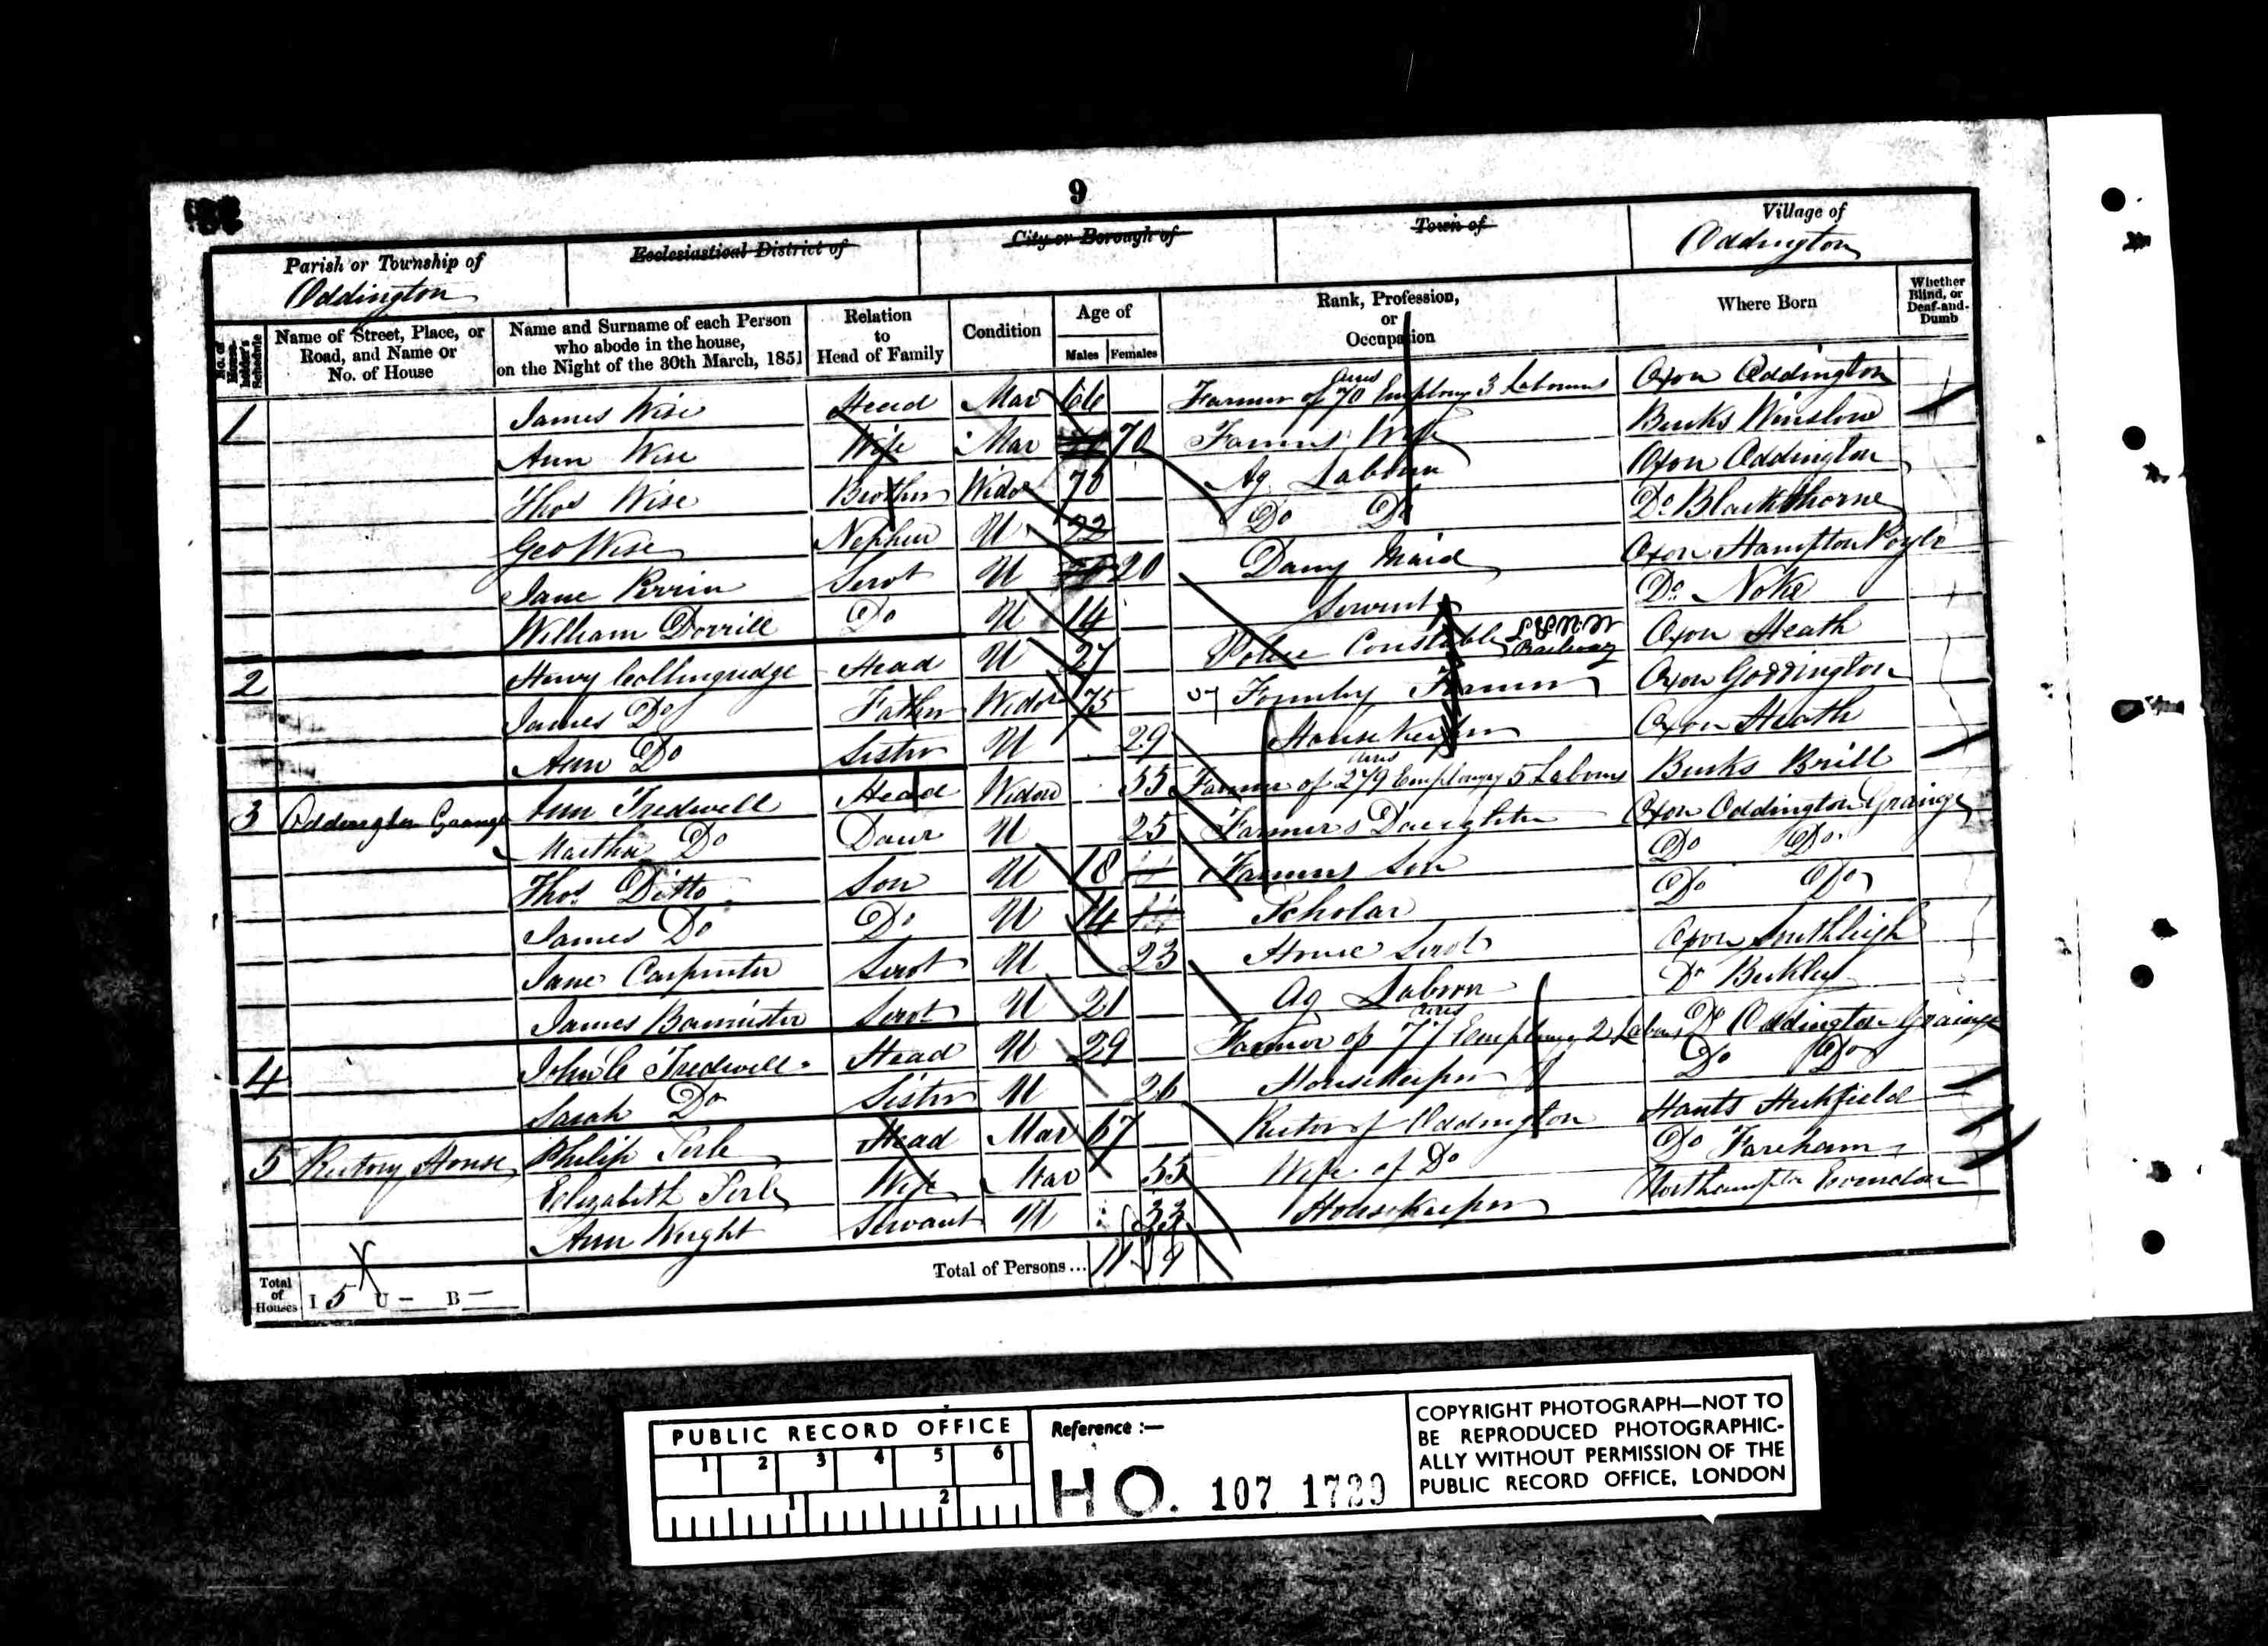 9
Parish or Township of
Oddington
Ecclesiastical District of
City or Borough of
Town of
Village of
Oddington
No. of House-holder's Schedule
Name of Street, Place, or Road, and Name or No. of House
Name and Surname of each Person who abode in the house, on the Night of the 30th March, 1851
Relation to Head of Family
Condition
Age of
Males Females
Rank, Profession, or Occupation
Where Born
Whether Blind, or Deaf-and-Dumb
1 James Wise Head Mar 66 Farmer of 70 acres Employg 3 Labourers Oxon Oddington
Ann Wise Wife Mar 70 Farmers Wife Bucks Winslow
Thos Wise Brother Widor 75 Ag Labour Oxon Oddington
Geo Wise Nephew U 22 Do Do Do Blackthorne
Jane Perrin Servt U 20 Dairy Maid Oxon Hampton Poyle
William Dorrill Do U 14 Servant Do Noke
2 Henry Collingridge Head U 27 Police Constable Railway Oxon Heath
James Do Father Widor 75 Formerly Farmer Oxon Goddington
Ann Do Sister U 29 House Keeper Oxon Heath
3 Oddington Grange Ann Tredwell Head Widow 55 Farmer of 279 acres Employing 5 Labours Bucks Brill
Martha Do Daur U 25 Farmers Daughter Oxon Oddington Grainge
Thos Ditto Son U 18 Farmers Son Do Do
James Do Do U 14 Scholar Do Do
Jane Carpenter Servt U 23 House Servt Oxon Southleigh
James Bannister Servt U 21 Ag Labour Do Beckley
4 John C Tredwell Head U 29 Farmer of 77 acres Employing 2 Labour Do Oddington Grainge
Sarah Do Sister U 26 HouseKeeper Do Do
5 Rectory House Philip Serle Head Mar 67 Rector of Oddington Hants Heckfield
Elizabeth Serle Wife Mar 55 Wife of Do Do Fareham
Ann Wright Servant U 33 HouseKeeper Northampton
Total of Houses I 5 U – B –
Total of Persons... 11 9
PUBLIC RECORD OFFICE
1 2 3 4 5 6
1 2
Reference :—
HO. 107 1729
COPYRIGHT PHOTOGRAPH—NOT TO
BE REPRODUCED PHOTOGRAPHIC-
ALLY WITHOUT PERMISSION OF THE
PUBLIC RECORD OFFICE, LONDON